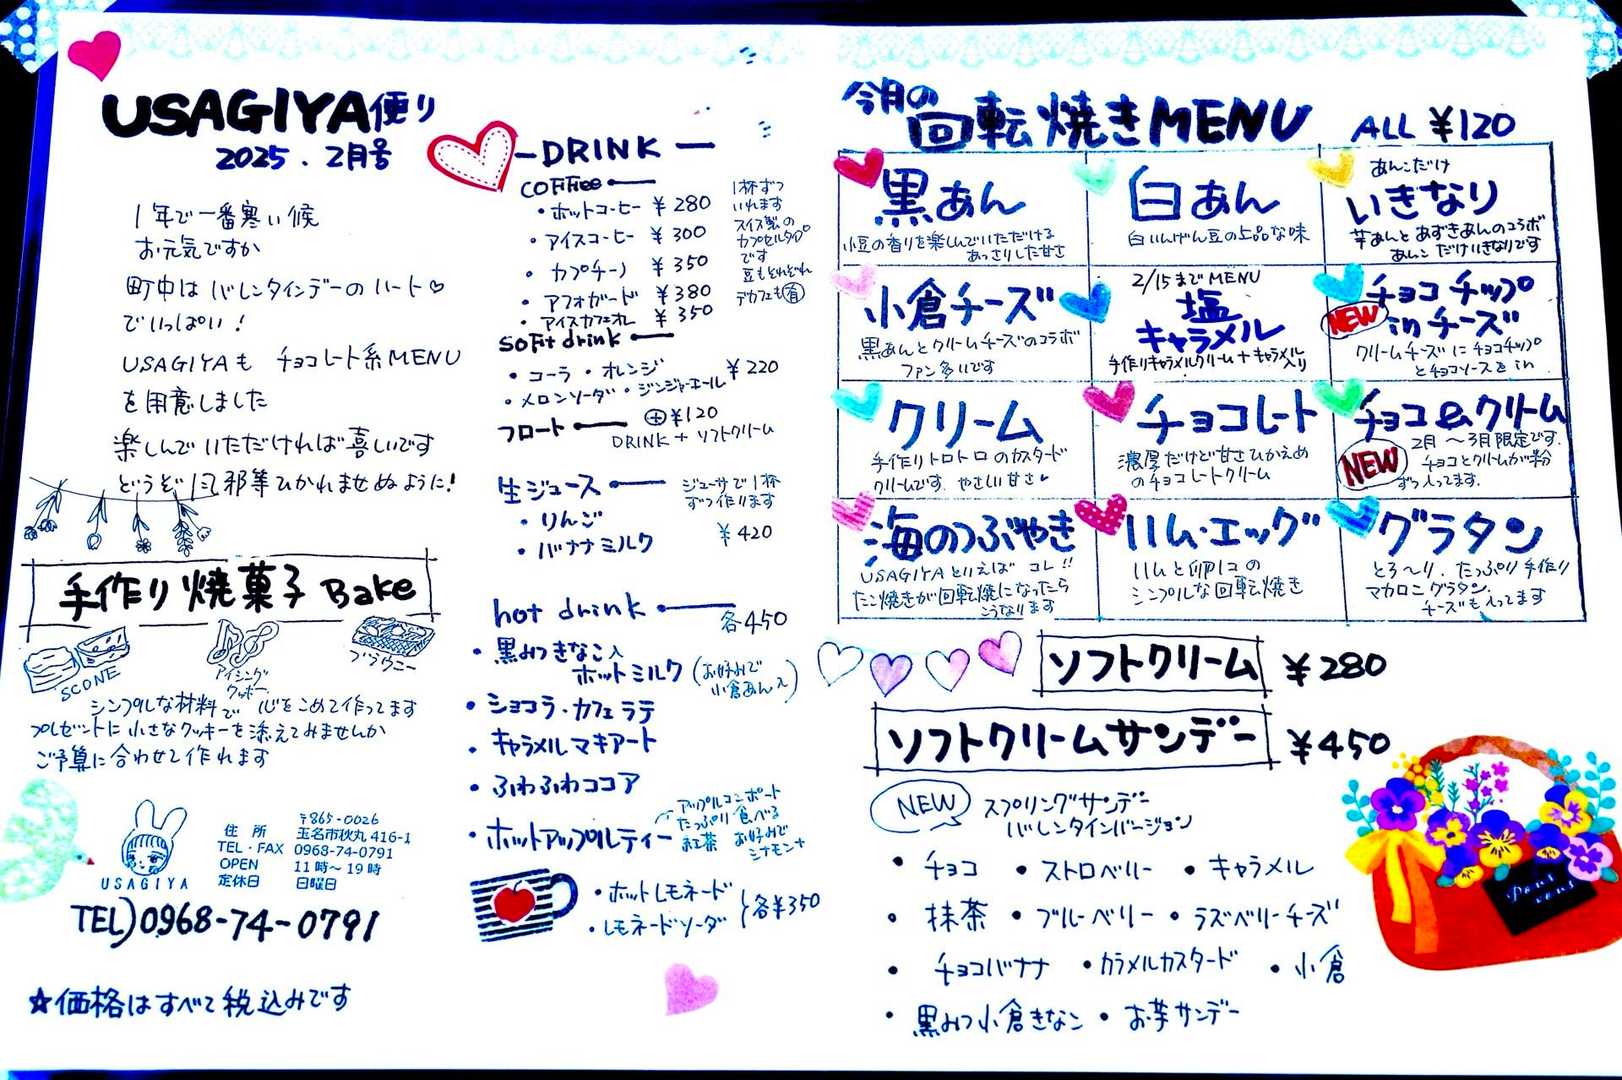 USAGIYA便り
2025.2月号
1年で一番寒い候
お元気ですか
町中は バレンタインデーのハート♡
でいっぱい!
USAGIYAも チョコレート系MENU
を用意しました
楽しんでいただければ喜しいです
どうぞ 風邪等ひかれませぬように!
手作り焼菓子 Bake
SCONE
アイシング
クッキー
ブラウニー
シンプルな材料で 心をこめて作ってます
プレゼントに小さなクッキーを添えてみませんか
ご予算に合わせて作れます
USAGIYA
住 所 〒865-0026
玉名市秋丸 416-1
TEL・FAX 0968-74-0791
OPEN 11時〜19時
定休日 日曜日
TEL)0968-74-0791
☆価格はすべて税込みです
DRINK
coffee
・ホットコーヒー ¥280
・アイスコーヒー ¥300
・カプチーノ ¥350
・アフォガード ¥380
・アイスカフェオレ ¥350
1杯ずつ
いれます
スイス製の
カプセルタイプ
です
豆もそれぞれ
デカフェも有
soft drink
・コーラ・オレンジ
・メロンソーダ・ジンジャーエール ¥220
フロート ⊕¥120
DRINK + ソフトクリーム
生ジュース
ジューサで1杯
ずつ作ります
・りんご
・バナナミルク
¥420
hot drink 各450
・黒みつきなこ入
ホットミルク (お好みで
小倉あん入)
・ショコラ・カフェラテ
・キャラメルマキアート
・ふわふわココア
・ホットアップルティー
アップルコンポート
たっぷり食べる
紅茶 お好みで
シナモン+
・ホットレモネード
・レモネードソーダ
各¥350
今月の
回転焼きMENU ALL ¥120
黒あん
小豆の香りを楽しんでいただける
あっさりした甘さ
白あん
白いんげん豆の上品な味
あんこだけ
いきなり
芋あんとあずきあんのコラボ
あんこだけいきなりです
小倉チーズ
黒あんとクリームチーズのコラボ
ファン多いです
2/15までMENU
塩
キャラメル
手作りキャラメルクリーム+キャラメル入り
チョコチップ
NEW
inチーズ
クリームチーズにチョコチップ
とチョコソースをin
クリーム
手作りトロトロのカスタード
クリームです. やさしい甘さ♥
チョコレート
濃厚だけど甘さひかえめ
のチョコレートクリーム
チョコ&クリーム
NEW
2月〜3月限定です.
チョコとクリームが半分
ずつ入ってます.
海のつぶやき
USAGIYAといえば コレ!!
たこ焼きが回転焼になったら
こうなります
ハム・エッグ
ハムと卵1コの
シンプルな回転焼き
グラタン
とろ〜り. たっぷり手作り
マカロニグラタン.
チーズも入ってます
ソフトクリーム ¥280
ソフトクリームサンデー ¥450
NEW スプリングサンデー
バレンタインバージョン
・チョコ ・ストロベリー ・キャラメル
・抹茶 ・ブルーベリー ・ラズベリーチーズ
・チョコバナナ ・カラメルカスタード ・小倉
・黒みつ小倉きなこ ・お芋サンデー